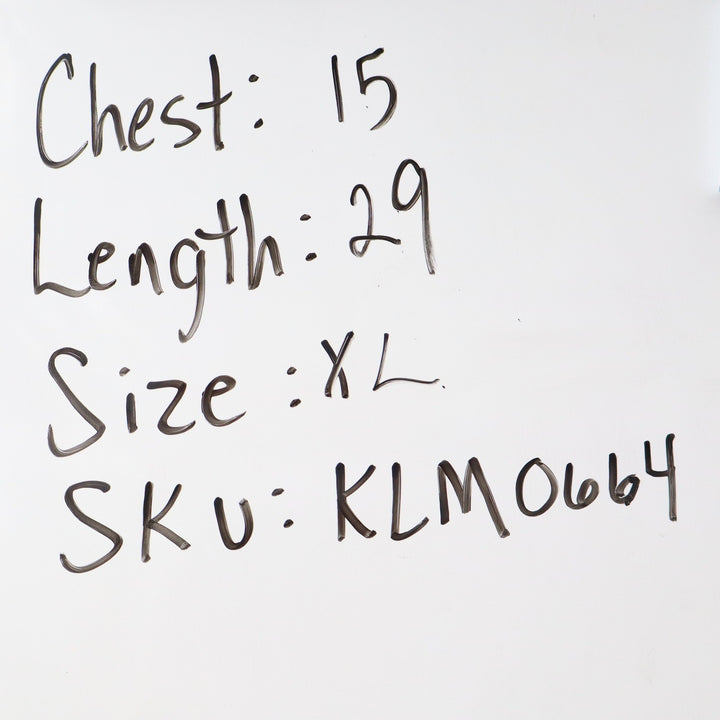 Chest: 15
Length: 29
Size: XL
SKU: KLM0664